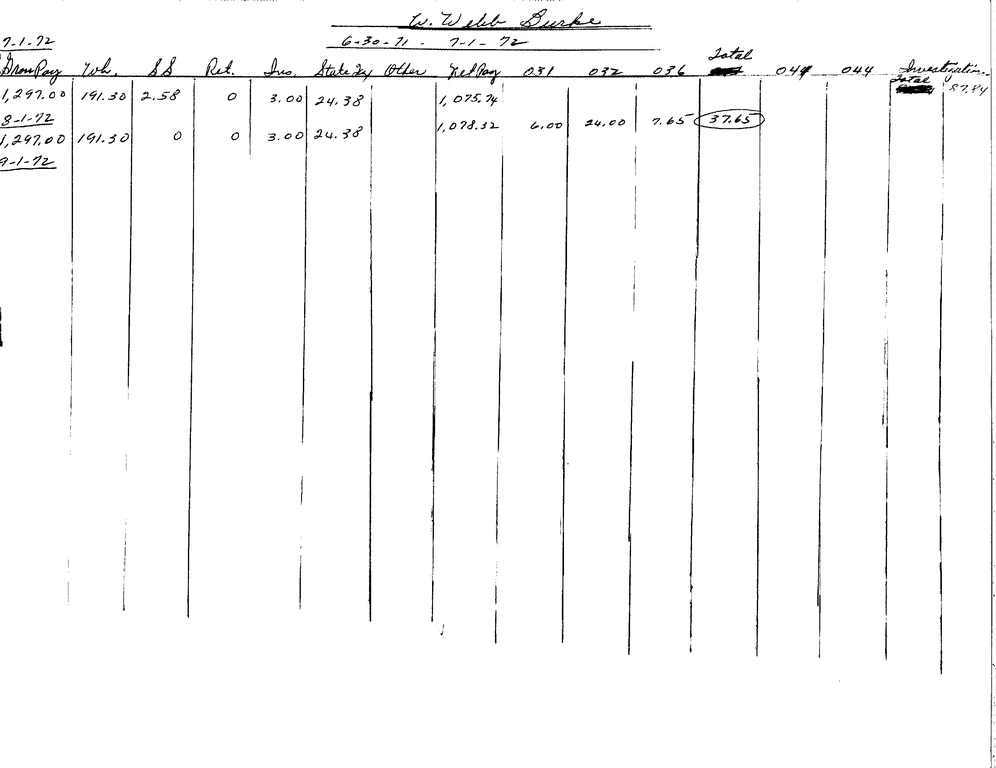 W. Webb Burke
7-1-72 6-30-71 - 7-1-72
Gross Pay Wh. SS Ret. Ins. State Tx Other Net Pay 031 032 036 Total 044 044 Investigation
Total
1,297.00 191.30 2.58 0 3.00 24.38 1,075.74 87.84
8-1-72
1,297.00 191.30 0 0 3.00 24.38 1,078.32 6.00 24.00 7.65 37.65
9-1-72